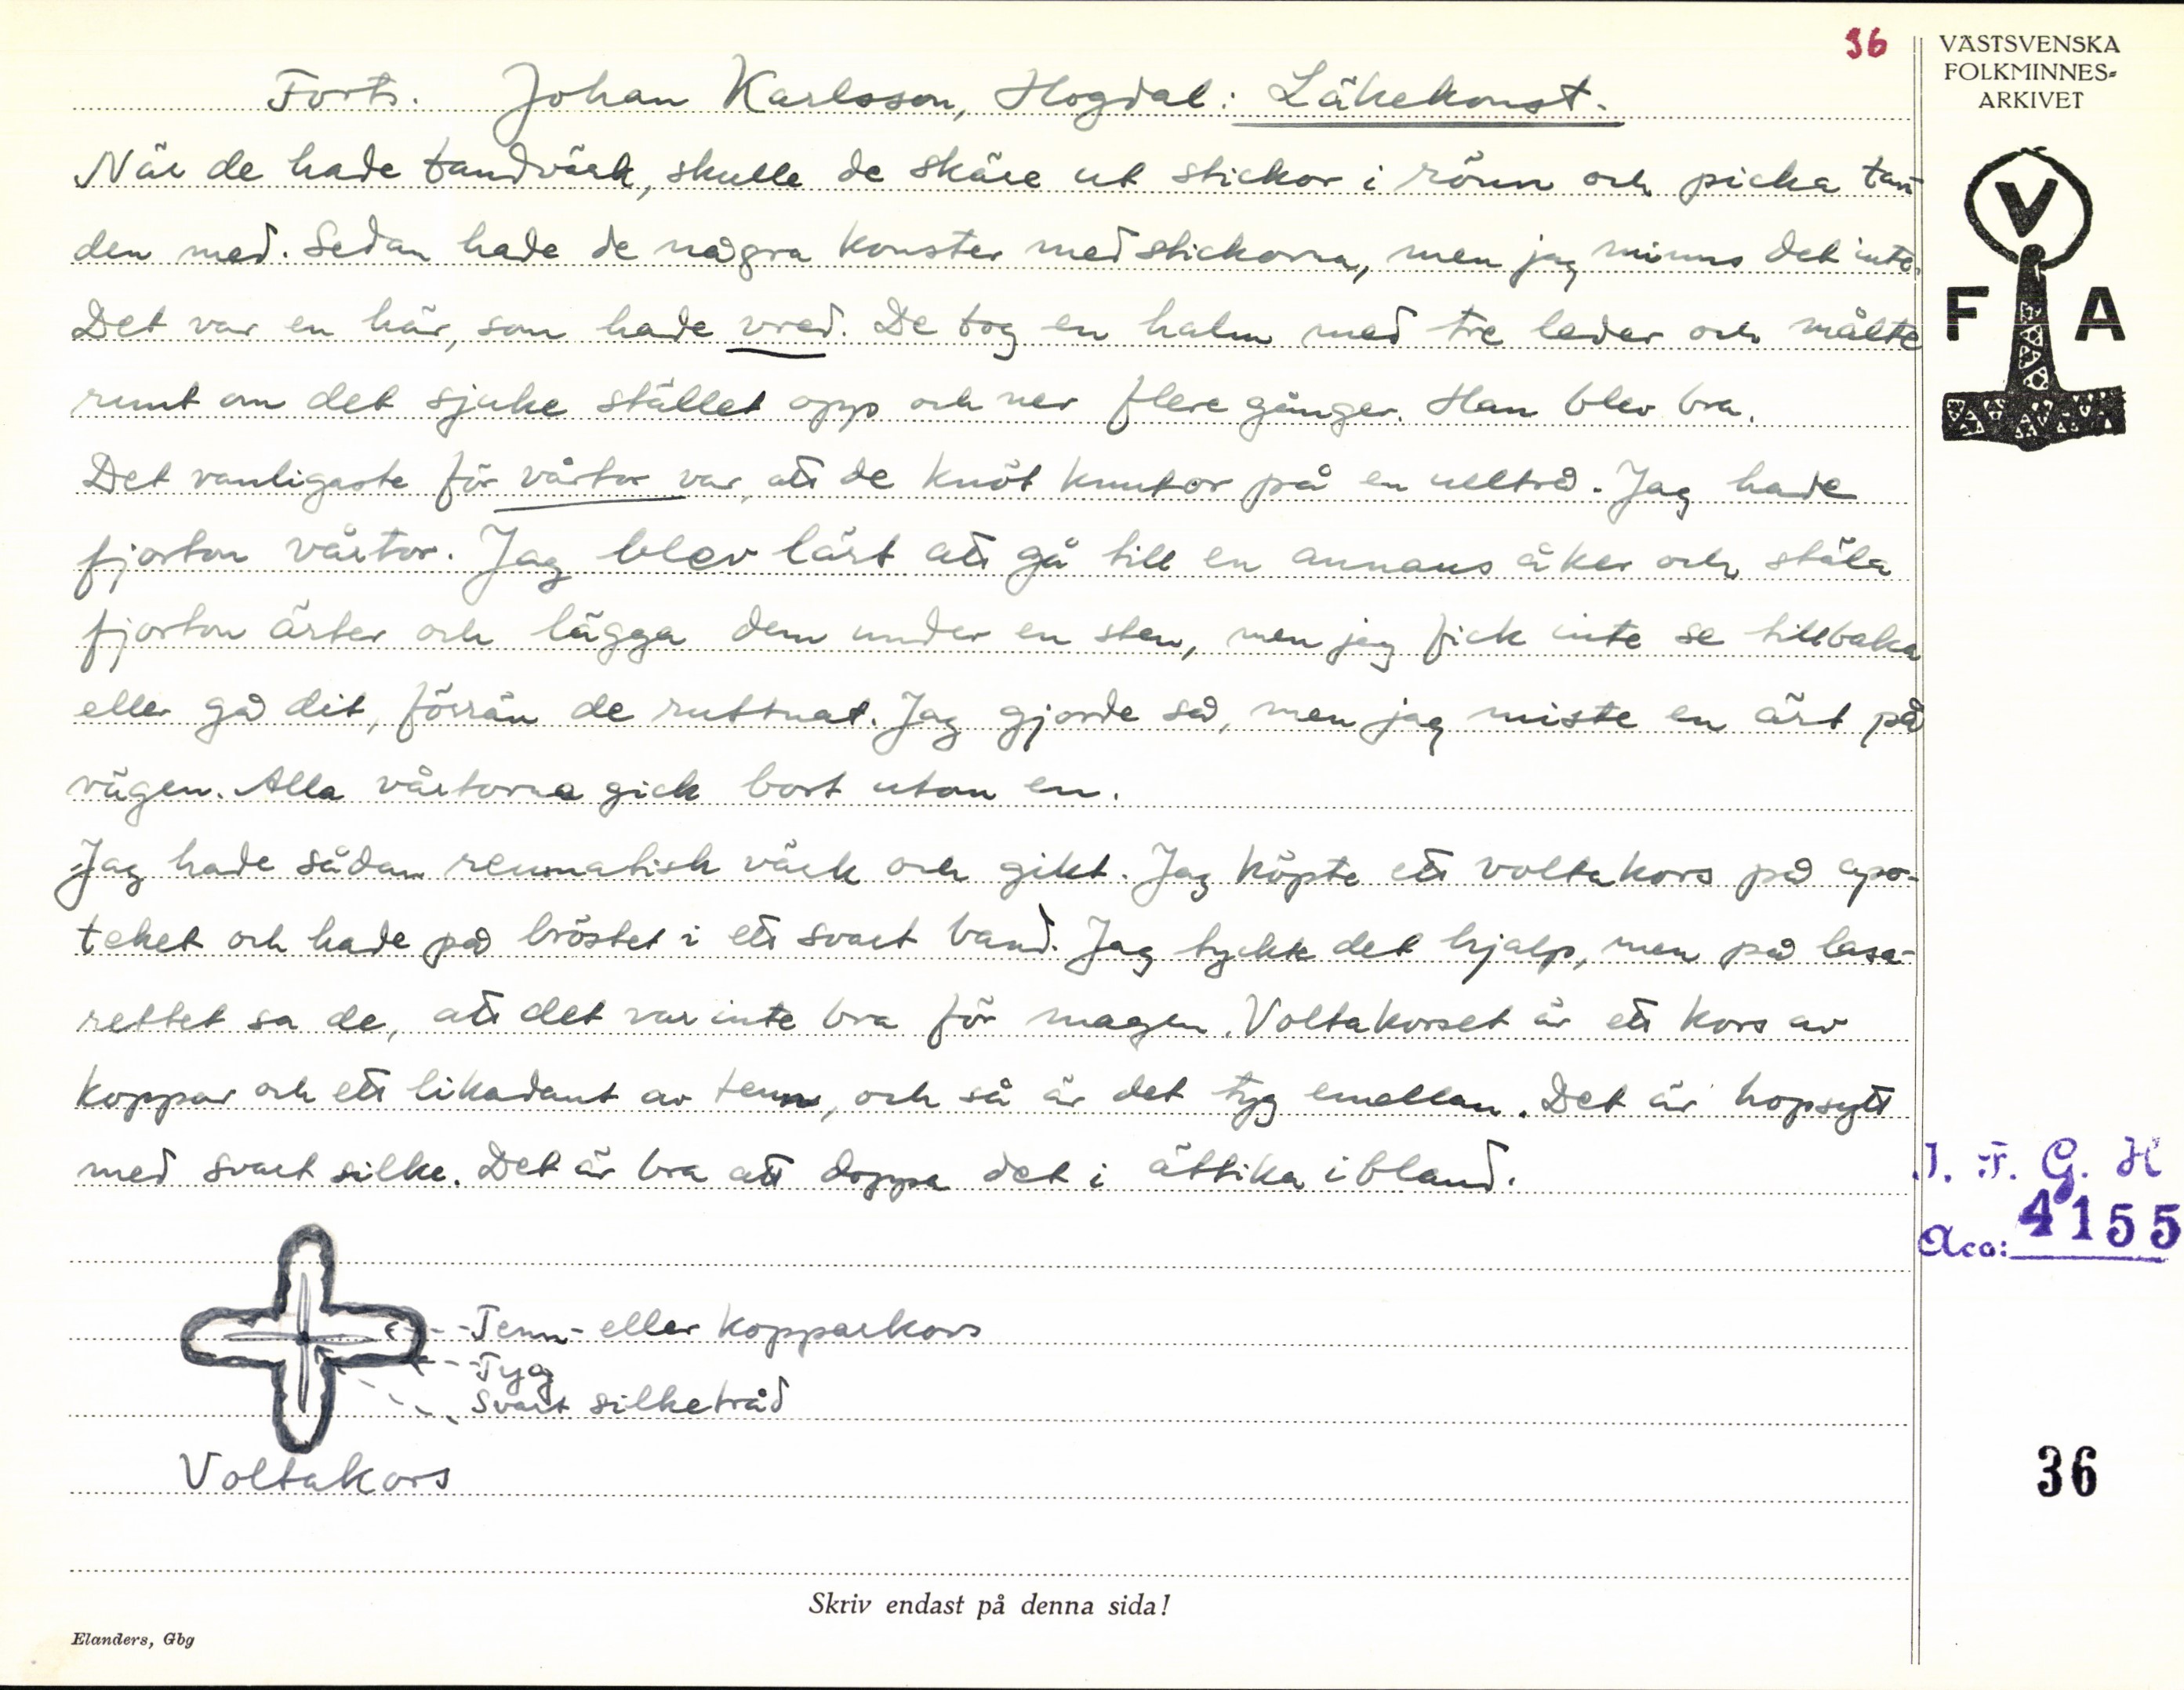 36
VÄSTSVENSKA
FOLKMINNES-
ARKIVET
V
F A
Forts. Johan Karlsson, Hogdal: Läkekonst.
När de hade tandvärk, skulle de skäre ut stickor i rönn och picka tan-
den med. Sedan hade de några konster med stickorna, men jag minns det inte.
Det var en här, som hade vred. De tog en halm med tre leder och målte
runt om det sjuke stället opp och ner flere gånger. Han blev bra.
Det vanligaste för vårtor var, att de knöt knutor på en ulltrå. Jag hade
fjorton vårtor. Jag blev lärt att gå till en annans åker och stäla
fjorton ärter och lägga dem under en sten, men jag fick inte se tillbaka
eller gå dit, förrän de ruttnat. Jag gjorde så, men jag miste en ärt på
vägen. Alla vårtorna gick bort utom en.
Jag hade sådan reumatisk värk och gikt. Jag köpte ett voltakors på apo-
teket och hade på bröstet i ett svart band. Jag tyckte det hjalp, men på lasa-
rettet sa de, att det var inte bra för magen. Voltakorset är ett kors av
koppar och ett likadant av tenn, och så är det tyg emellan. Det är hopsytt
med svart silke. Det är bra att doppa det i ättika ibland.
Tenn- eller kopparkors
Tyg
Svart silketråd
Voltakors
I. F. G. H
Acc: 4155
36
Skriv endast på denna sida!
Elanders, Gbg